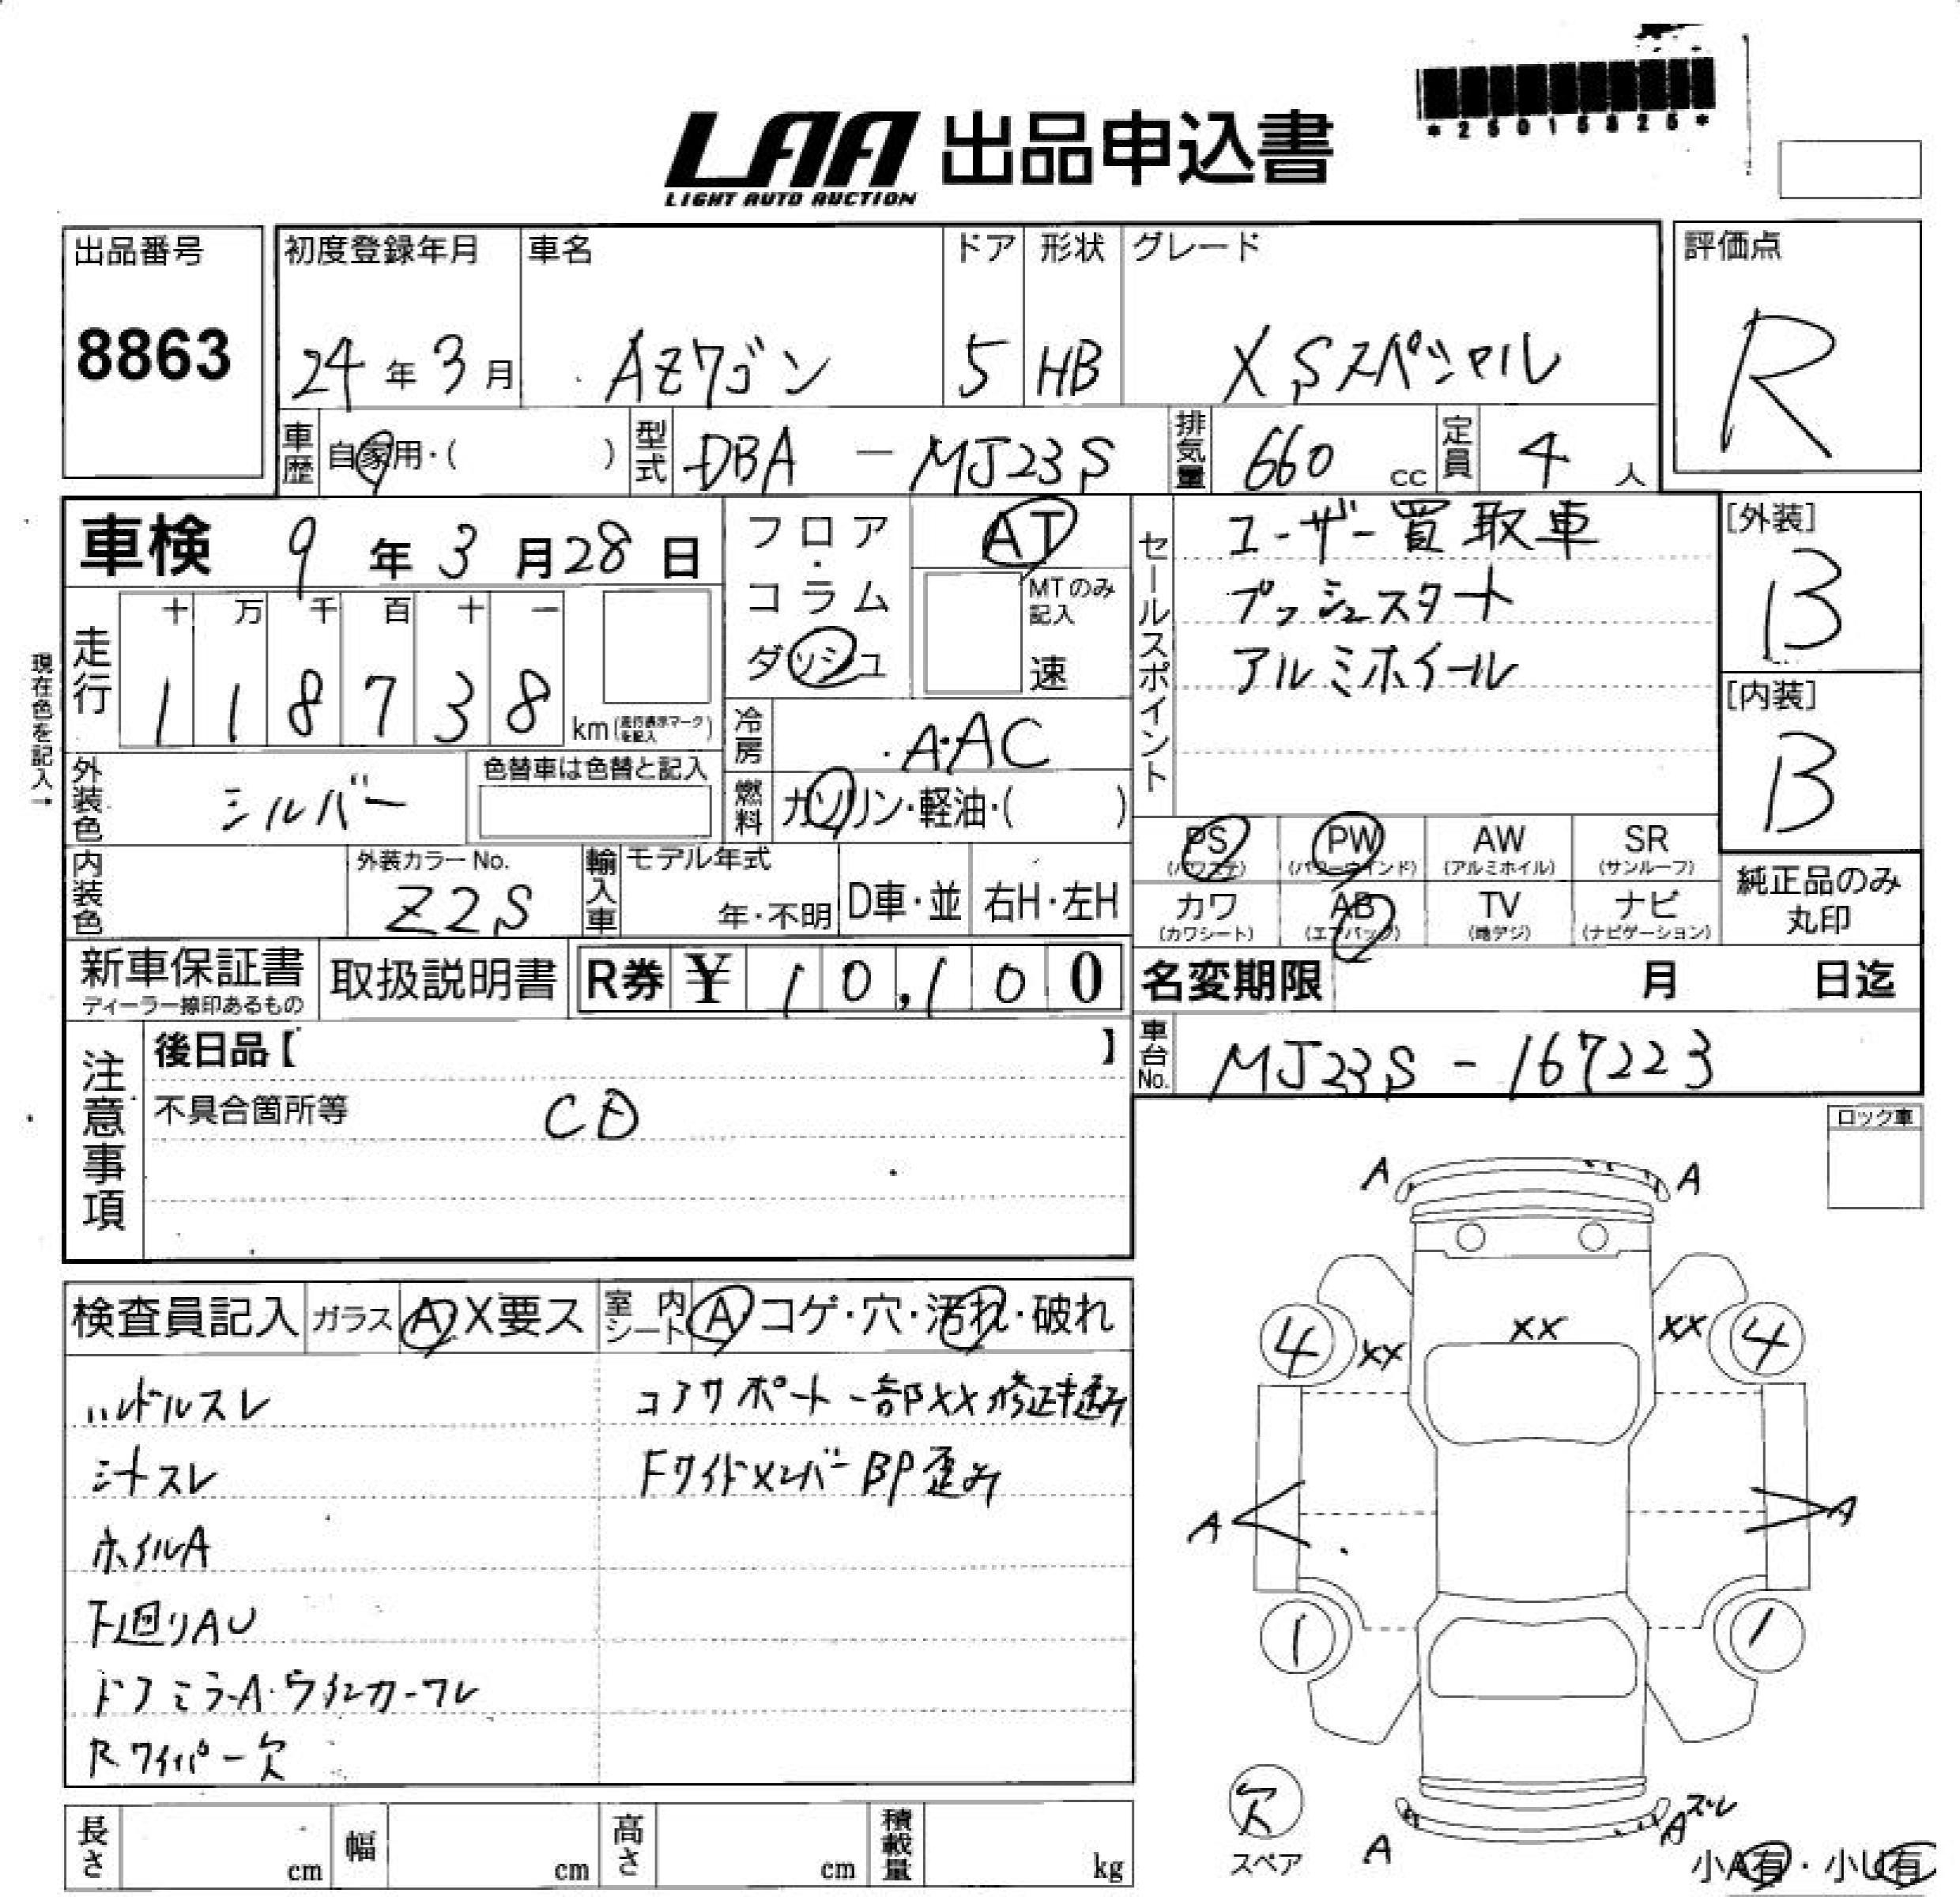 *25015325*
LAA 出品申込書
LIGHT AUTO AUCTION
出品番号 初度登録年月 車名 ドア 形状 グレード 評価点
8863 24年3月 AZワゴン 5 HB XSスペシャル R
車歴 自家用・( ) 型式 DBA - MJ23S 排気量 660 cc 定員 4 人
車検 9年3月28日 フロア・コラム ダッシュ AT セールスポイント ユーザー買取車 [外装]
MTのみ記入 速 プッシュスタート B
現在色を記入→
走行 十 万 千 百 十 一 アルミホイール [内装]
1 1 8 7 3 8 km (走行表示マークを記入) B
冷房 AAC
外装色 シルバー 色替車は色替と記入 燃料 ガソリン・軽油・( )
PS (パワステ) PW (パワーウインド) AW (アルミホイル) SR (サンルーフ)
内装色 外装カラーNo. Z2S 輸入車 モデル年式 年・不明 D車・並 右H・左H
カワ (カワシート) AB (エアバッグ) TV (地デジ) ナビ (ナビゲーション) 純正品のみ丸印
新車保証書 ディーラー捺印あるもの 取扱説明書 R券 ¥ 10,100 名変期限 月 日迄
注意事項 後日品【 】 車台No. MJ23S - 167223
不具合箇所等 CD
ロック車
A A
検査員記入 ガラス A X要ス 室内シート A コゲ・穴・汚れ・破れ
4 XX XX XX 4
ハンドルスレ コアサポート一部XX修正歪み
シートスレ Fサイドメンバー BP歪み
A A
ホイルA
下廻りAU
1 1
ドアミラーA・ウインカーワレ
Rワイパー欠
欠 スペア
A A ズレ
長さ cm 幅 cm 高さ cm 積載量 kg
小A有・小U有